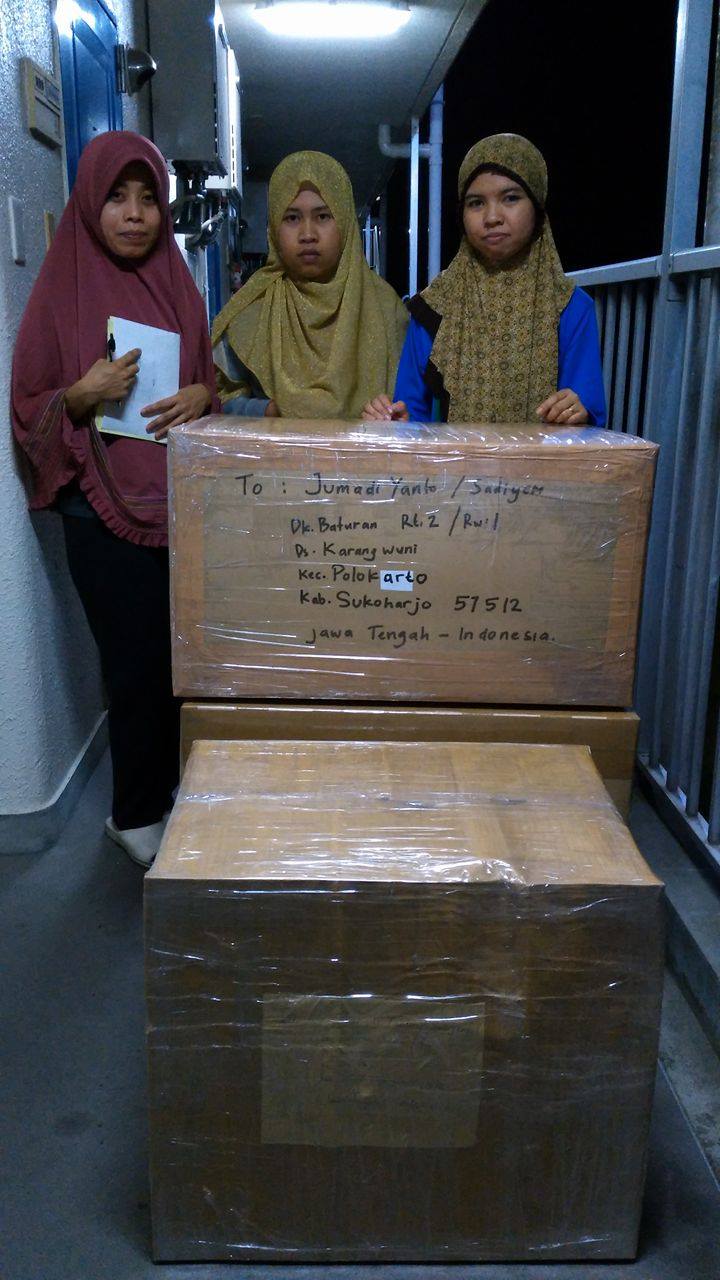 To : Jumadi Yanto / Sadiyem
Dk. Baturan Rt. 2 / Rw: 1
Ds. Karang wuni
Kec. Polokarto
Kab. Sukoharjo 57512
Jawa Tengah - Indonesia.